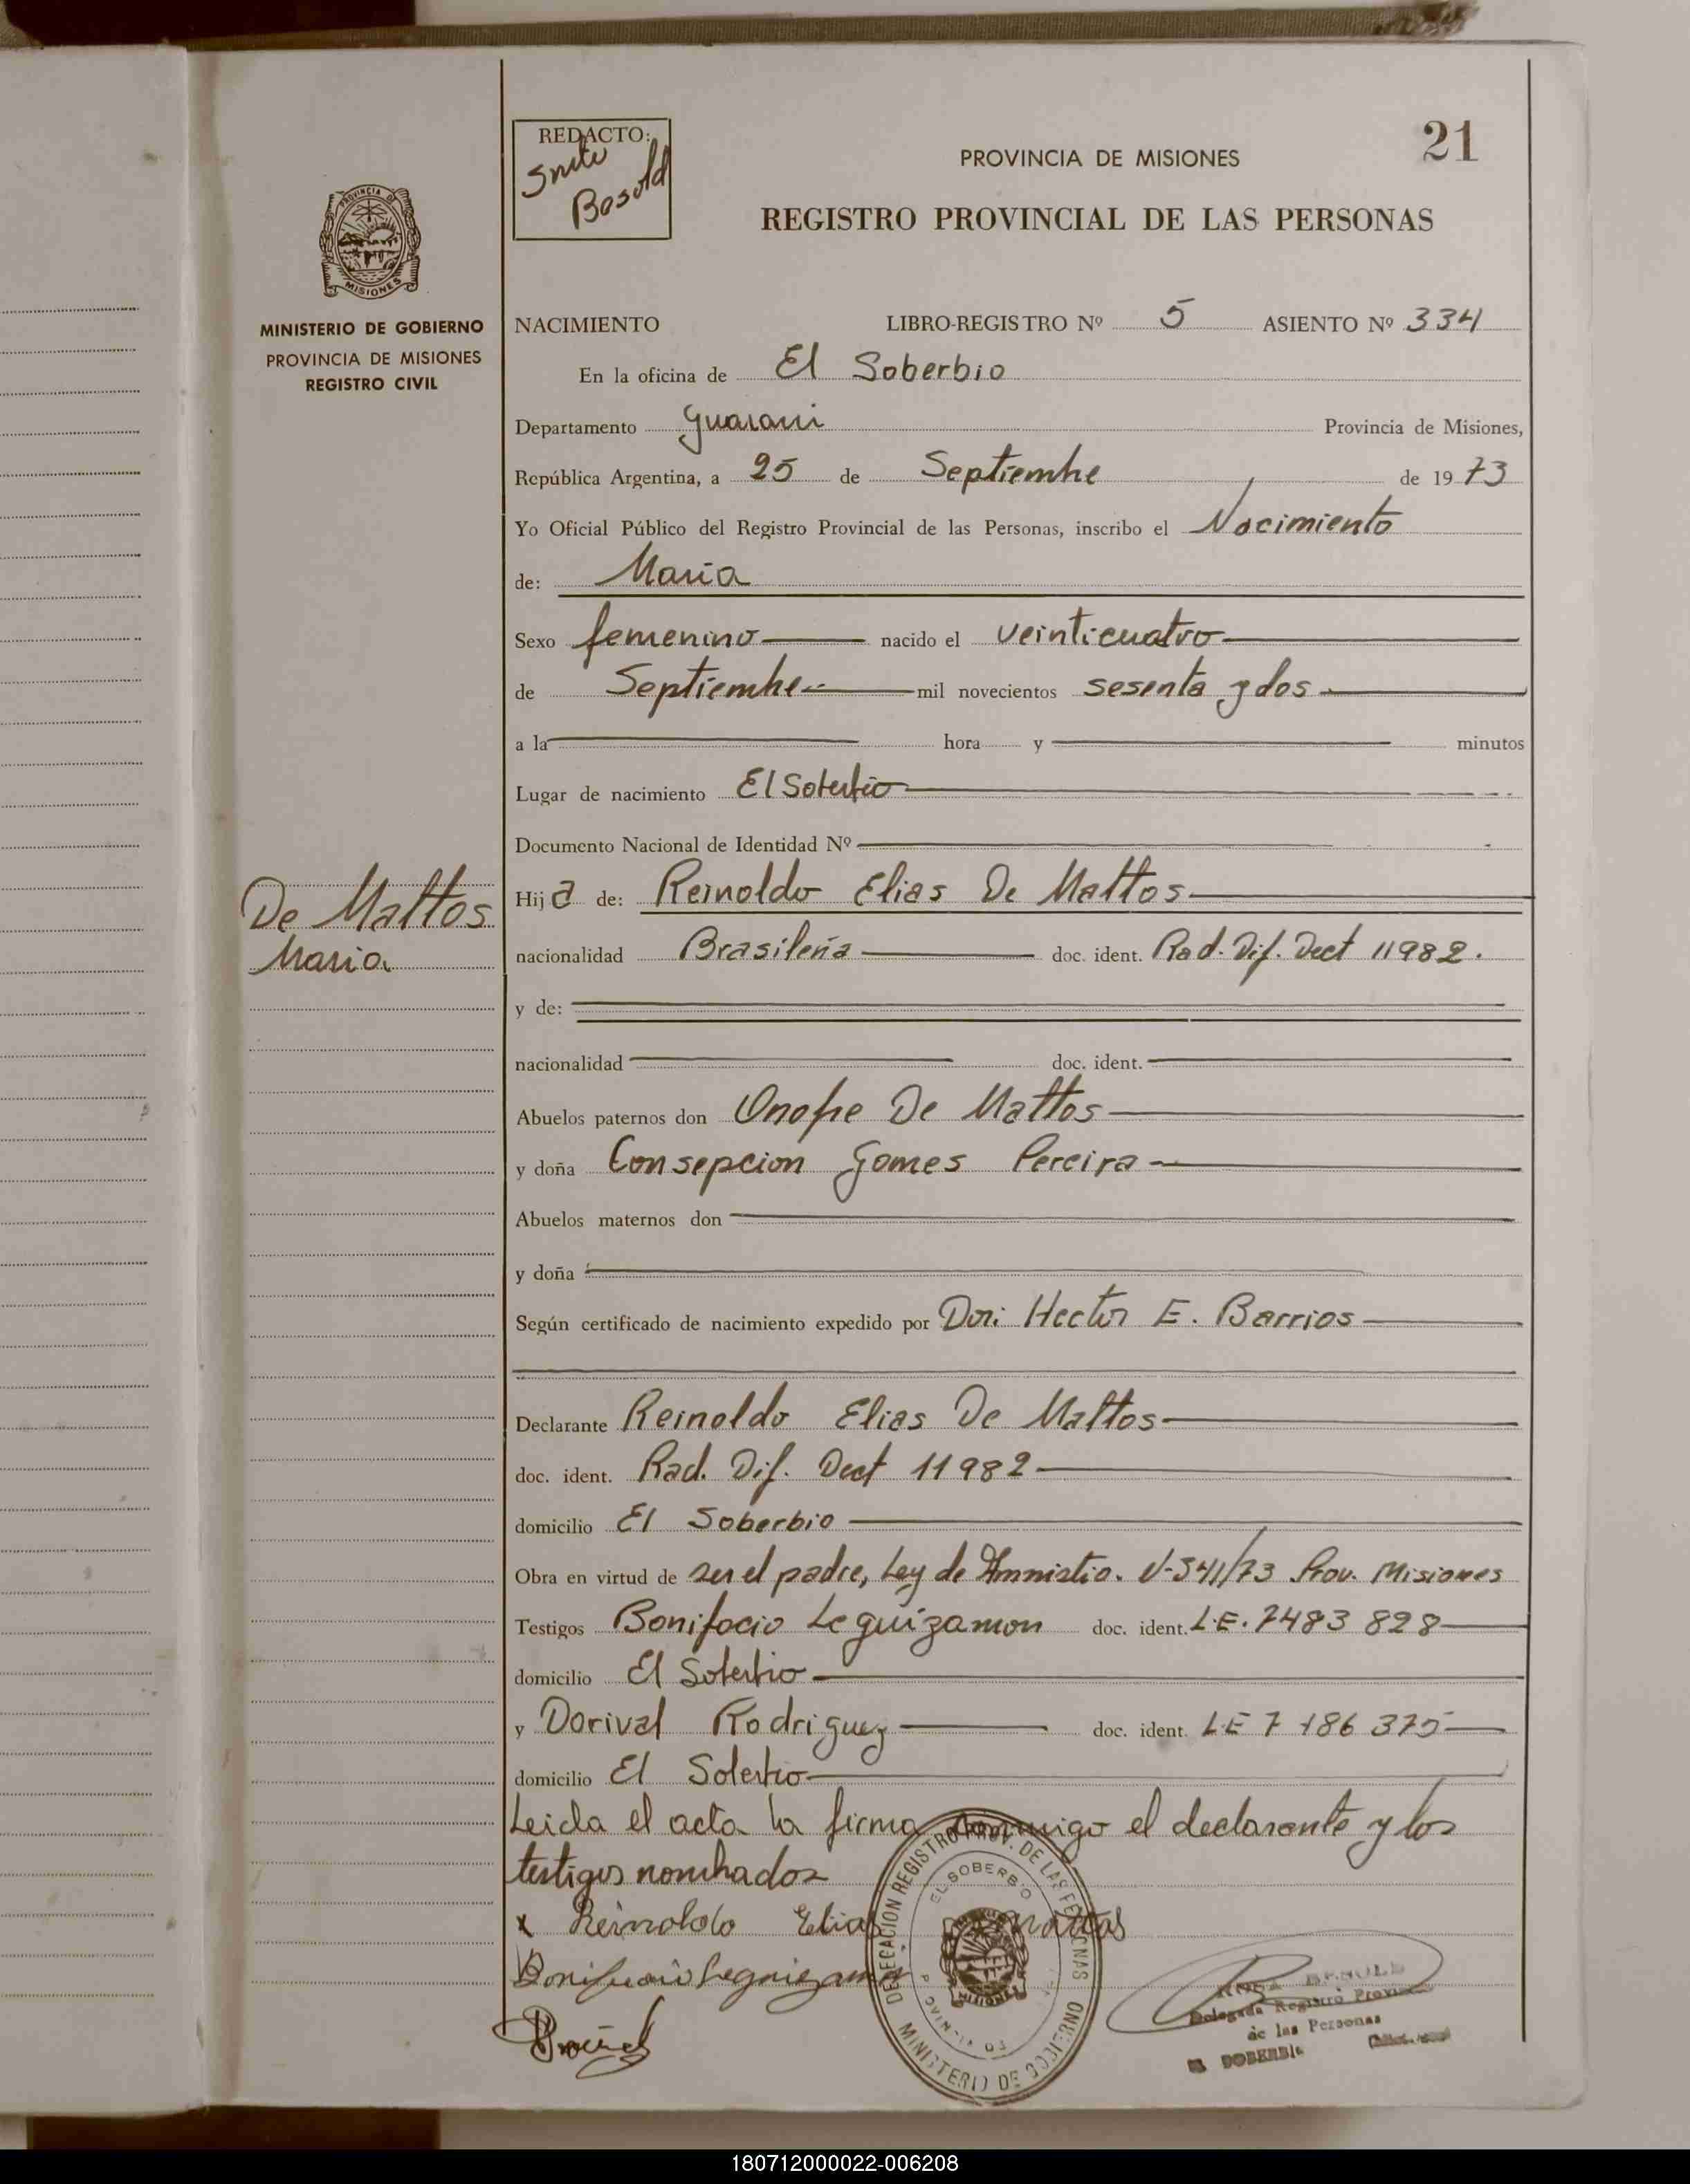 21
REDACTO:
PROVINCIA DE MISIONES
REGISTRO PROVINCIAL DE LAS PERSONAS
PROVINCIA DE
MISIONES
MINISTERIO DE GOBIERNO
PROVINCIA DE MISIONES
REGISTRO CIVIL
NACIMIENTO LIBRO-REGISTRO Nº 5 ASIENTO Nº 334
En la oficina de El Soberbio
Departamento Guarani Provincia de Misiones,
República Argentina, a 25 de Septiembre de 1973
Yo Oficial Público del Registro Provincial de las Personas, inscribo el Nacimiento
de: Maria
Sexo femenino nacido el veinticuatro
de Septiembre mil novecientos sesenta y dos
a la hora y minutos
Lugar de nacimiento El Soberbio
Documento Nacional de Identidad Nº
De Mattos
Maria
Hija de: Reinoldo Elias De Mattos
nacionalidad Brasileña doc. ident. Rad. Dif. Dect 11982.
y de:
nacionalidad doc. ident.
Abuelos paternos don Onofre De Mattos
y doña Consepcion Gomes Pereira
Abuelos maternos don
y doña
Según certificado de nacimiento expedido por Hector E. Barrios
Declarante Reinoldo Elias De Mattos
doc. ident. Rad. Dif. Dect 11982
domicilio El Soberbio
Obra en virtud de ser el padre, Ley de Amnistia. Prov. Misiones
Testigos Bonifacio Leguizamon doc. ident. L.E. 7483 828
domicilio El Soberbio
y Dorival Rodriguez doc. ident. L.E 7 186 375
domicilio El Soberbio
Leida el acta la firma conmigo el declarante y los
testigos nombrados
x Reinoldo Elias Mattos
Bonifacio Leguizamon
DELEGACION REGISTRO PROV. DE LAS PERSONAS
EL SOBERBIO
PROVINCIA DE
MISIONES
MINISTERIO DE GOBIERNO
Delegada Registro Provincial
de las Personas
EL SOBERBIO
180712000022-006208